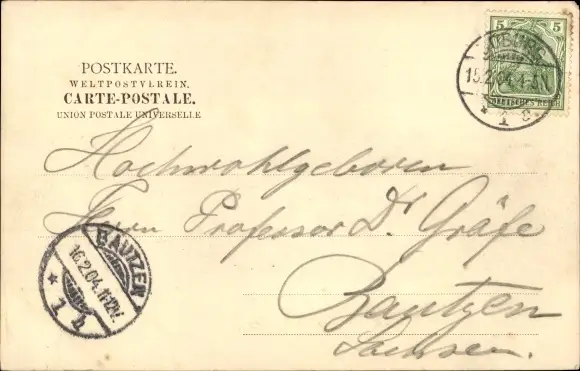 POSTKARTE.
WELTPOSTVEREIN.
CARTE-POSTALE.
UNION POSTALE UNIVERSELLE
5 5
15.2.04. 4-5N
* 1 c *
DEUTSCHES REICH
Hochwohlgeboren
Herrn Professor Dr Gräfe
Bautzen
Sachsen.
BAUTZEN
16.2.04.
* 1 b